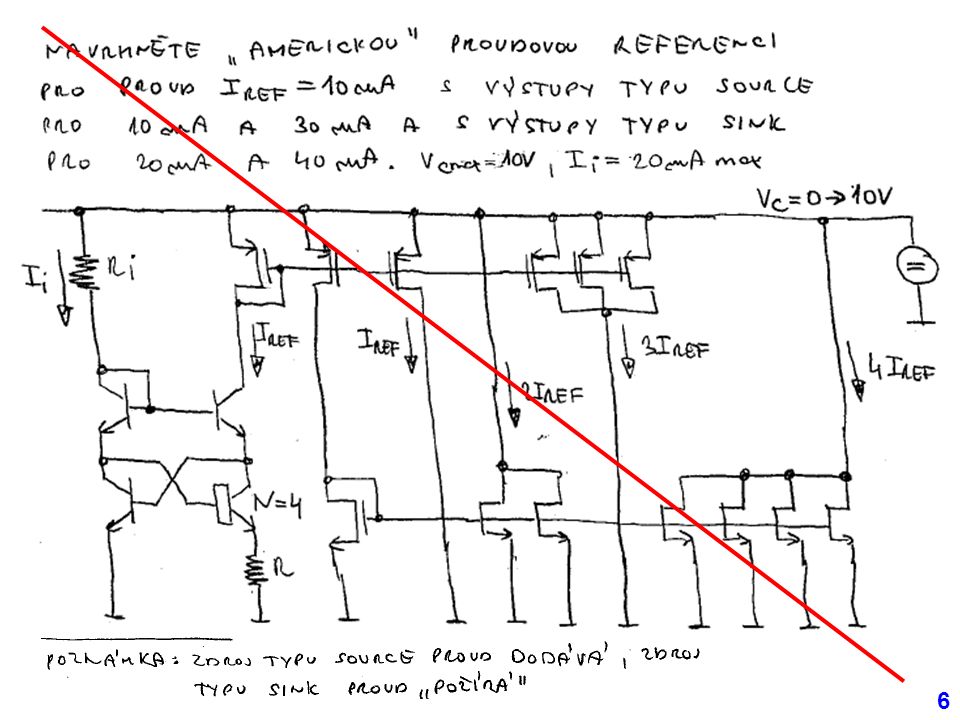 NAVRHNĚTE „AMERICKOU" PROUDOVOU REFERENCI
PRO PROUD IREF = 10 μA S VÝSTUPY TYPU SOURCE
PRO 10 μA A 30 μA A S VÝSTUPY TYPU SINK
PRO 20 μA A 40 μA. Vcmax=10V, Ii = 20 μA max
VC=0→10V
Ii
Ri
IREF
IREF
3IREF
2IREF
4IREF
N=4
R
POZNÁMKA: ZDROJ TYPU SOURCE PROUD DODÁVÁ, ZDROJ
TYPU SINK PROUD „POŽÍRÁ"
6